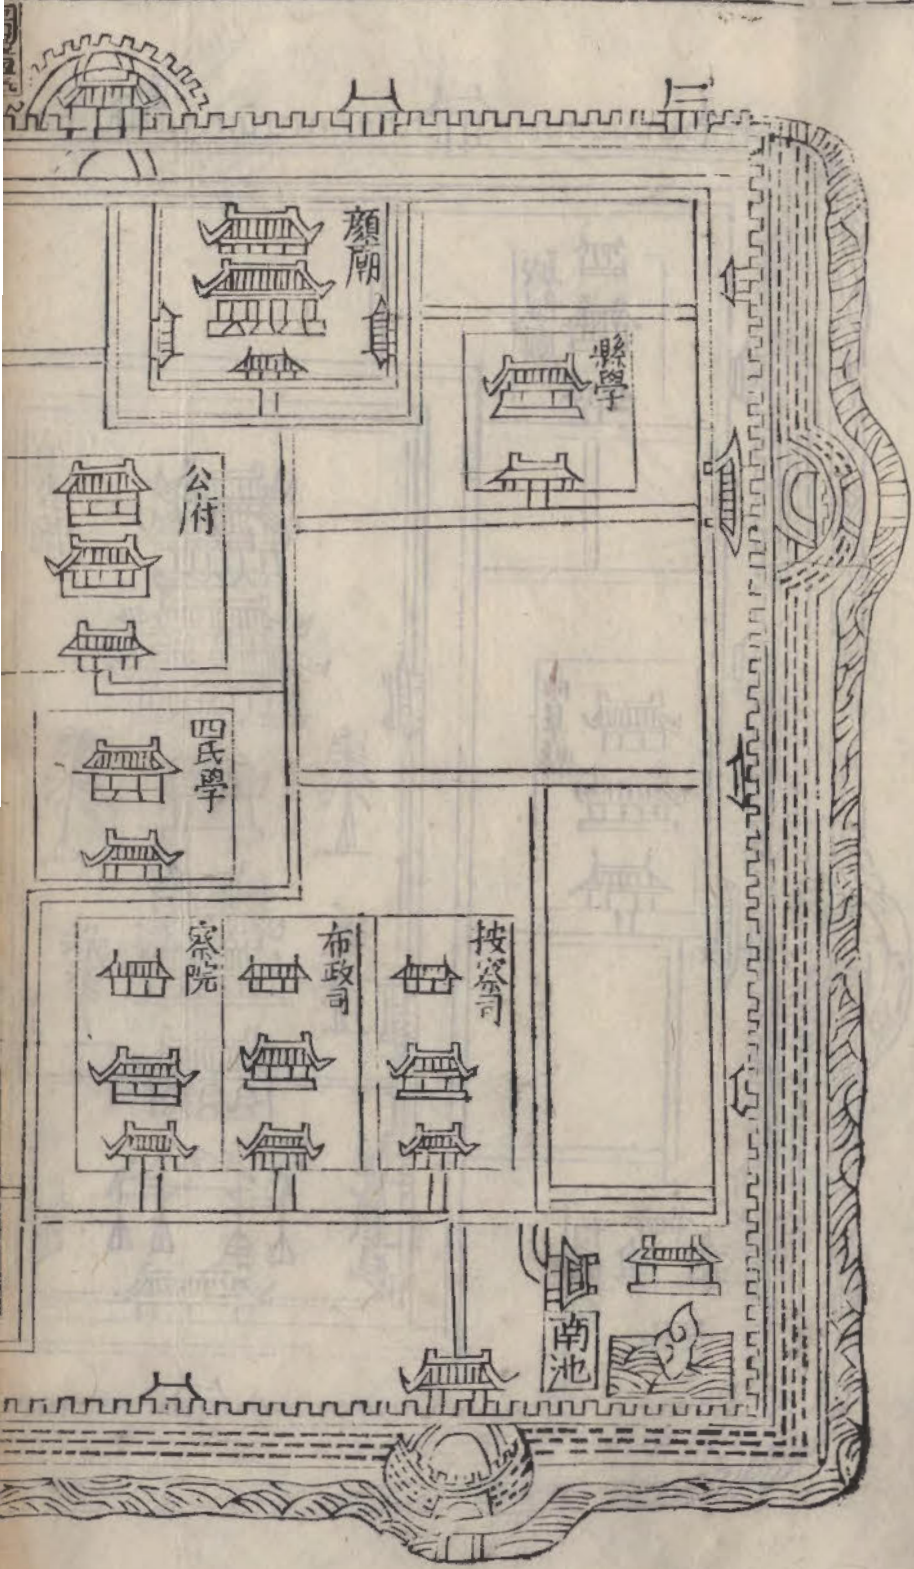 顏廟
縣學
公府
四氏學
按察司
布政司
察院
南池